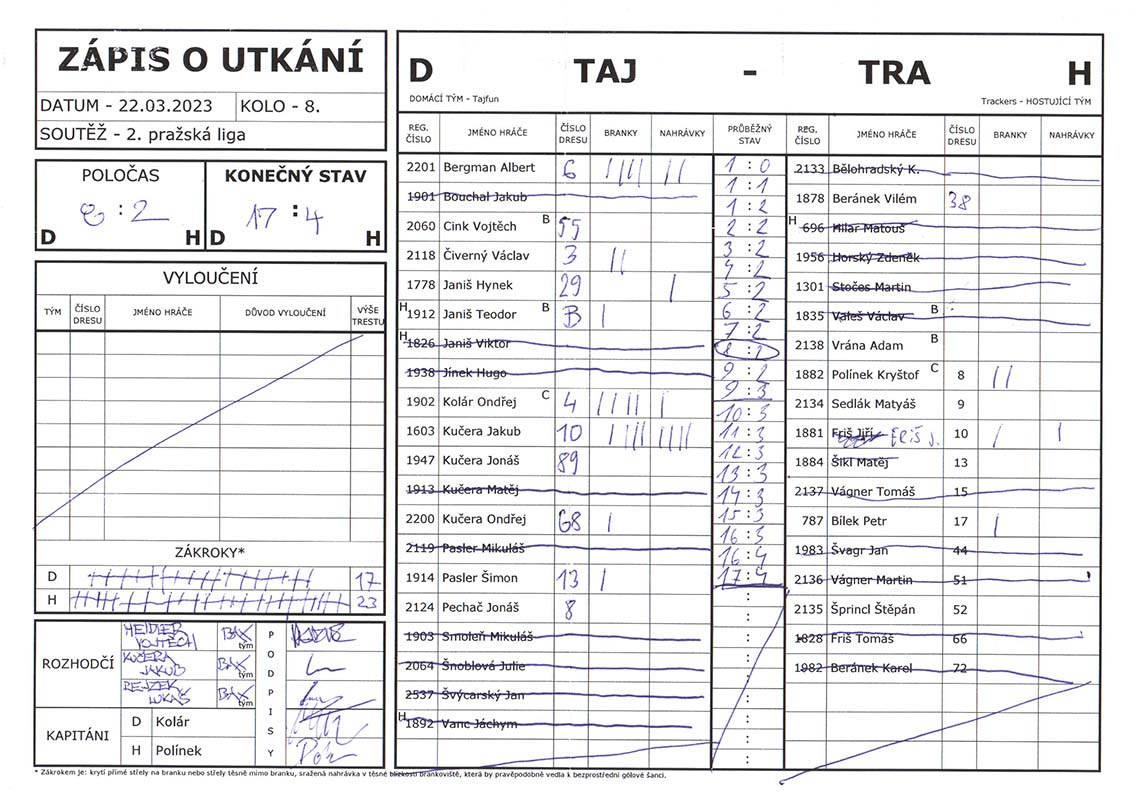 ZÁPIS O UTKÁNÍ
DATUM - 22.03.2023 KOLO - 8.
SOUTĚŽ - 2. pražská liga
POLOČAS KONEČNÝ STAV
8 : 2 17 : 4
D H D H
VYLOUČENÍ
TÝM ČÍSLO DRESU JMÉNO HRÁČE DŮVOD VYLOUČENÍ VÝŠE TRESTU
ZÁKROKY*
D 17
H 23
ROZHODČÍ
HEIDLER VOJTĚCH BAX tým
KUČERA JAKUB BAX tým
LUKÁŠ BAX tým
PODPISY
KAPITÁNI
D Kolár
H Polínek
D TAJ - TRA H
DOMÁCÍ TÝM - Tajfun Trackers - HOSTUJÍCÍ TÝM
REG. ČÍSLO JMÉNO HRÁČE ČÍSLO DRESU BRANKY NAHRÁVKY PRŮBĚŽNÝ STAV REG. ČÍSLO JMÉNO HRÁČE ČÍSLO DRESU BRANKY NAHRÁVKY
2201 Bergman Albert 6 |||| ||
1901 Bouchal Jakub
2060 Cink Vojtěch B 55
2118 Čiverný Václav 3 ||
1778 Janiš Hynek 29 |
H 1912 Janiš Teodor B B |
H 1826 Janiš Viktor
1938 Jínek Hugo
1902 Kolár Ondřej C 4 |||| |
1603 Kučera Jakub 10 |||| ||||
1947 Kučera Jonáš 89
1913 Kučera Matěj
2200 Kučera Ondřej 68 |
2119 Pasler Mikuláš
1914 Pasler Šimon 13 |
2124 Pechač Jonáš 8
1903 Smoleň Mikuláš
2064 Šnoblová Julie
2537 Švýcarský Jan
H 1892 Vanc Jáchym
1 : 0
1 : 1
1 : 2
2 : 2
3 : 2
4 : 2
5 : 2
6 : 2
7 : 2
8 : 2
9 : 2
9 : 3
10 : 3
11 : 3
12 : 3
13 : 3
14 : 3
15 : 3
16 : 3
16 : 4
17 : 4
2133 Bělohradský K.
1878 Beránek Vilém 38
H 696 Hilar Matouš
1956 Horský Zdeněk
1301 Stočes Martin
1835 Valeš Václav B
2138 Vrána Adam B
1882 Polínek Kryštof C 8 ||
2134 Sedlák Matyáš 9
1881 Friš Jiří FRIŠ J. 10 | |
1884 Šikl Matěj 13
2137 Vágner Tomáš 15
787 Bílek Petr 17 |
1983 Švagr Jan 44
2136 Vágner Martin 51
2135 Šprincl Štěpán 52
1828 Friš Tomáš 66
1982 Beránek Karel 72
* Zákrokem je: krytí přímé střely na branku nebo střely těsně mimo branku, sražená nahrávka v těsné blízkosti brankoviště, která by pravěpodobně vedla k bezprostřední gólové šanci.